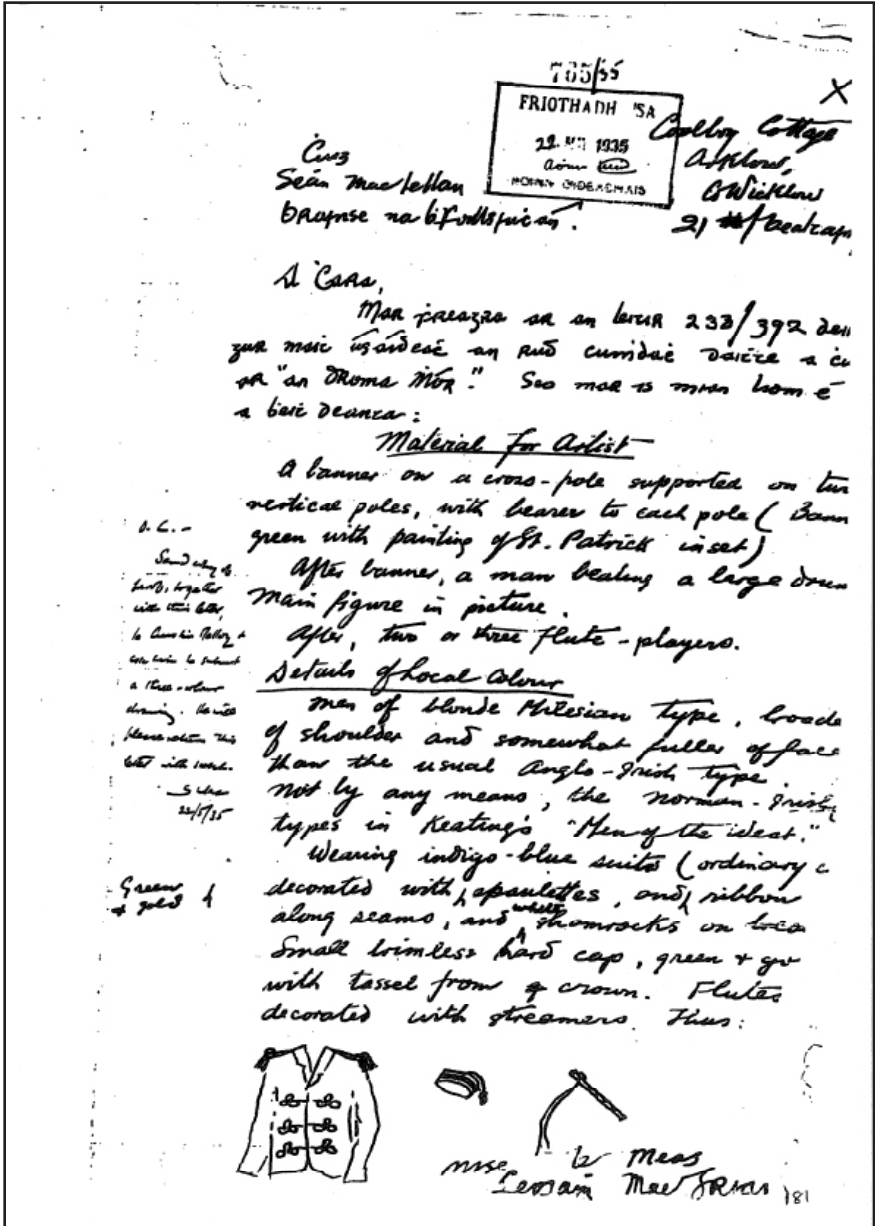 765/35
FRIOTHADH 'SA
22 1935
X
Coolboy Cottage
Arklow,
Co Wicklow
21
Seán Mac Lellan
A Ċara,
Mar ḟreagra ar an leitir 233/392
an rud
ar "an Droma Mór." Seo mar is mian liom é
a beit deanta:
Material for Artist
A banner on a cross-pole supported on
vertical poles, with bearer to each pole (
green with painting of St. Patrick inset)
After banner, a man beating a large drum
Main figure in picture.
After, two or three flute-players.
Details of Local Colour
Men of blonde Milesian type,
of shoulder and somewhat fuller of face
than the usual Anglo-Irish type.
Not by any means, the Norman-Irish
types in Keating's "Men of the West."
Wearing indigo-blue suits (ordinary
decorated with epaulettes, and ribbon
along seams, and white shamrocks on
Small brimless hard cap, green +
with tassel from crown. Flutes
decorated with streamers. Thus:
Send copy of
together
with this letter,
to
ask him to submit
a three-colour
drawing. He will
please return this
letter with
22/5/35
Green
+ gold
mise le meas
181